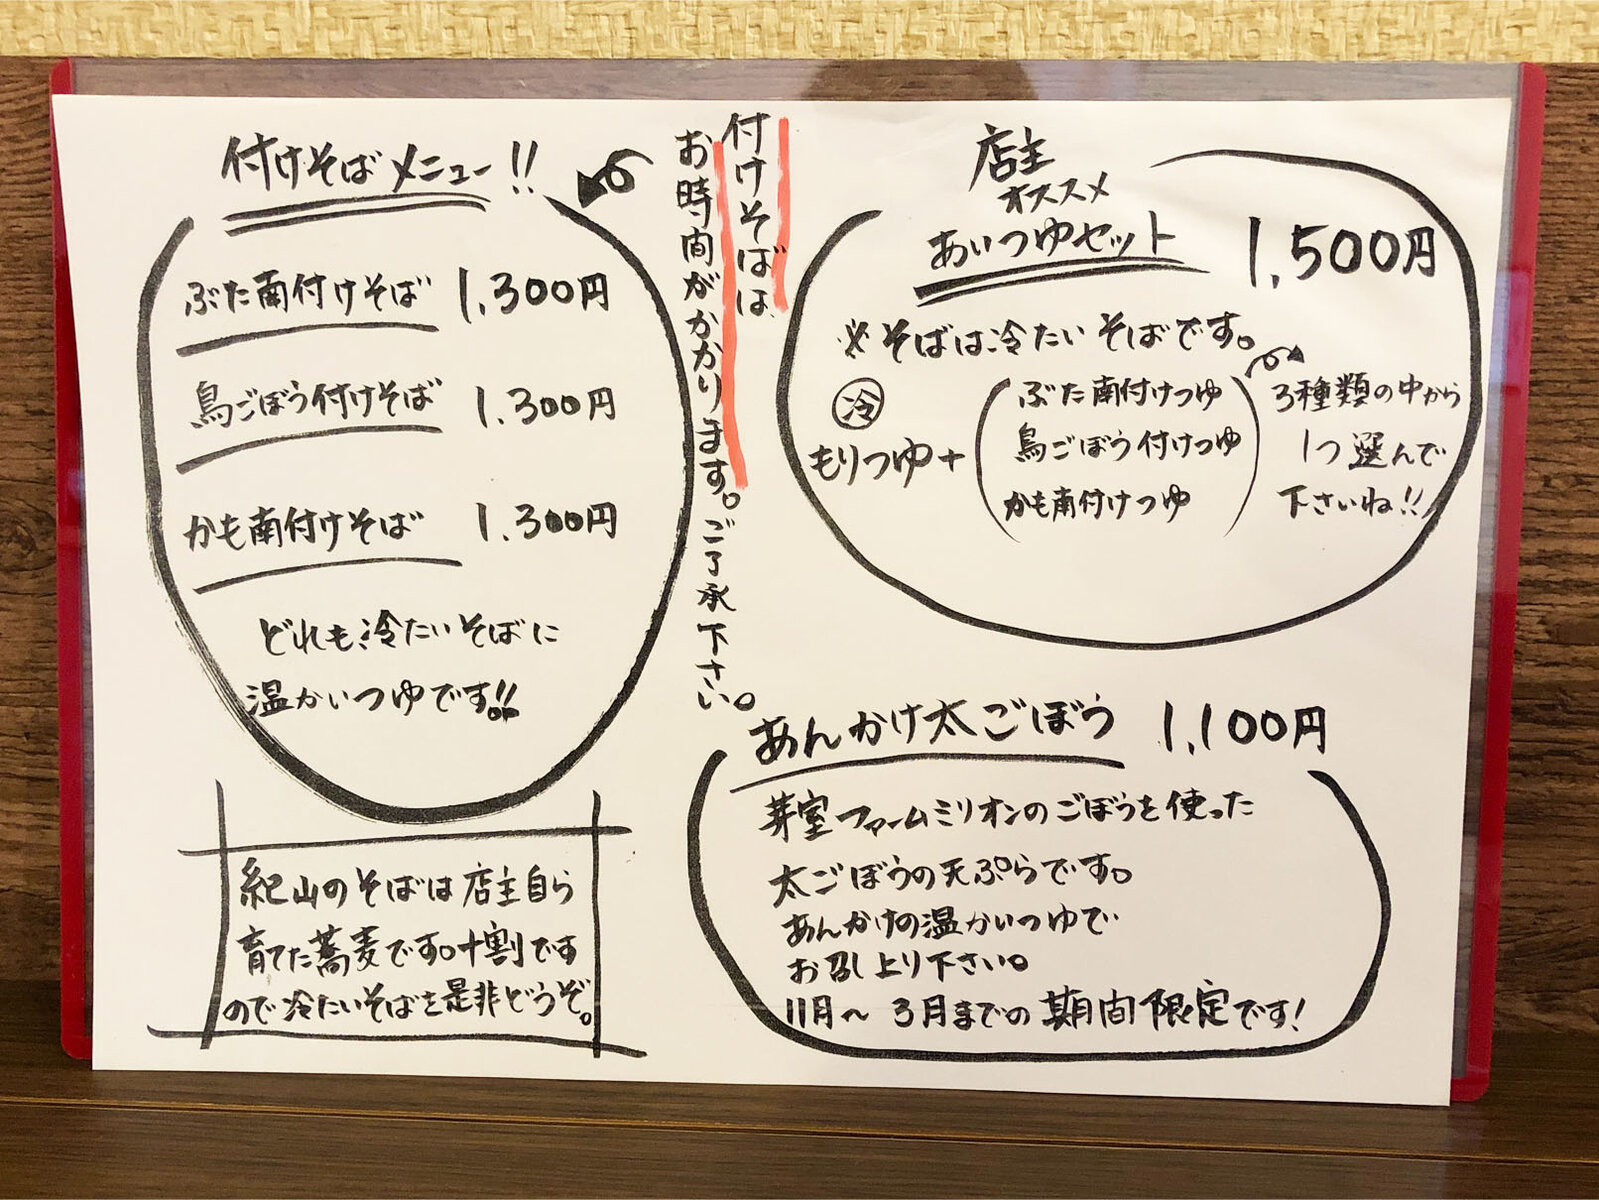 付けそばメニュー!!
ぶた南付けそば 1,300円
鳥ごぼう付けそば 1.300円
かも南付けそば 1.300円
どれも冷たいそばに
温かいつゆです!!
付けそばは
お時間がかかります。ご了承下さい。
店主
オススメ
あいつゆセット 1,500円
※そばは冷たいそばです。
冷
もりつゆ+
ぶた南付けつゆ
鳥ごぼう付けつゆ
かも南付けつゆ
3種類の中から
1つ選んで
下さいね!!
あんかけ太ごぼう 1,100円
芽室ファームミリオンのごぼうを使った
太ごぼうの天ぷらです。
あんかけの温かいつゆで
お召し上り下さい。
11月〜3月までの期間限定です!
紀山のそばは店主自ら
育てた蕎麦です。十割です
ので冷たいそばを是非どうぞ。